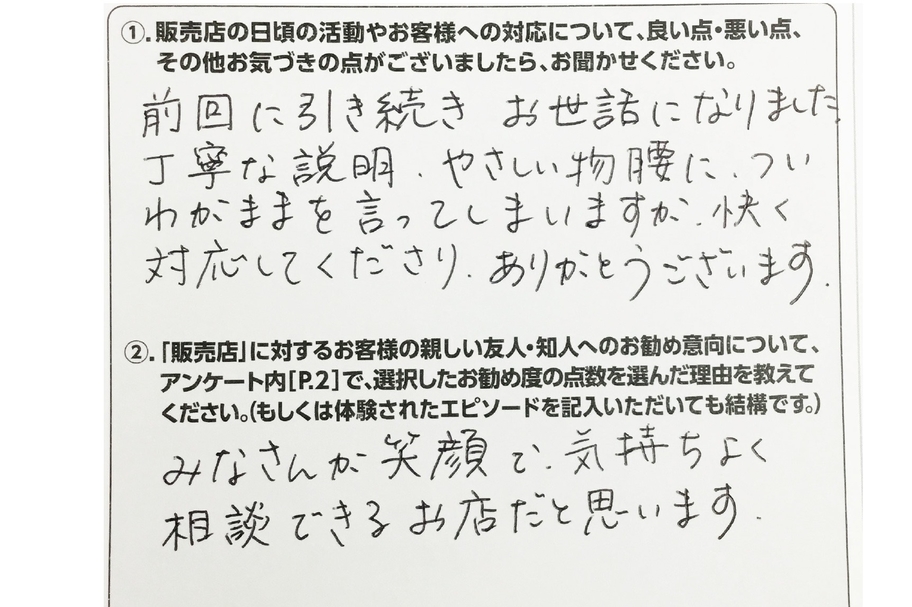 ①.販売店の日頃の活動やお客様への対応について、良い点・悪い点、
その他お気づきの点がございましたら、お聞かせください。
前回に引き続き お世話になりました
丁寧な説明、やさしい物腰に、つい
わがままを言ってしまいますが、快く
対応してくださり、ありがとうございます。
②.「販売店」に対するお客様の親しい友人・知人へのお勧め意向について、
アンケート内[P.2]で、選択したお勧め度の点数を選んだ理由を教えて
ください。(もしくは体験されたエピソードを記入いただいても結構です。)
みなさんが笑顔で、気持ちよく
相談できるお店だと思います。